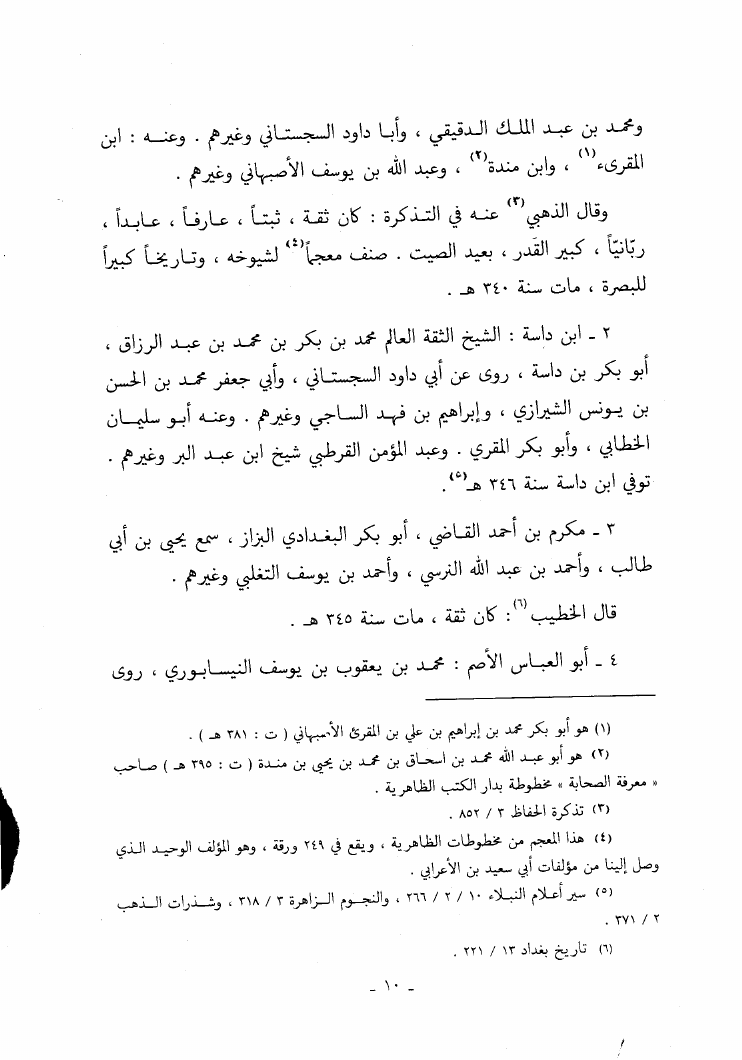 ومحمد بن عبد الملك الدقيقي ، وأبا داود السجستاني وغيرهم . وعنه : ابن
المقرىء(١) ، وابن مندة(٢) ، وعبد الله بن يوسف الأصبهاني وغيرهم .
وقال الذهبي(٣) عنه في التذكرة : كان ثقة ، ثبتاً ، عارفاً ، عابداً ،
ربّانيّاً ، كبير القَدر ، بعيد الصيت . صنف معجماً(٤) لشيوخه ، وتاريخاً كبيراً
للبصرة ، مات سنة ٣٤٠ هـ .
٢ ـ ابن داسة : الشيخ الثقة العالم محمد بن بكر بن محمد بن عبد الرزاق ،
أبو بكر بن داسة ، روى عن أبي داود السجستاني ، وأبي جعفر محمد بن الحسن
بن يونس الشيرازي ، وإبراهيم بن فهد الساجي وغيرهم . وعنه أبو سليمان
الخطابي ، وأبو بكر المقري . وعبد المؤمن القرطبي شيخ ابن عبد البر وغيرهم .
توفي ابن داسة سنة ٣٤٦ هـ(٥).
٣ ـ مكرم بن أحمد القاضي ، أبو بكر البغدادي البزاز ، سمع يحيى بن أبي
طالب ، وأحمد بن عبد الله النرسي ، وأحمد بن يوسف التغلبي وغيرهم .
قال الخطيب(٦): كان ثقة ، مات سنة ٣٤٥ هـ .
٤ ـ أبو العباس الأصم : محمد بن يعقوب بن يوسف النيسابوري ، روى
(١) هو أبو بكر محمد بن إبراهيم بن علي بن المقرئ الأصبهاني ( ت : ٣٨١ هـ ) .
(٢) هو أبو عبد الله محمد بن اسحاق بن محمد بن يحيى بن مندة ( ت : ٣٩٥ هـ ) صاحب
« معرفة الصحابة » مخطوطة بدار الكتب الظاهرية .
(٣) تذكرة الحفاظ ٣ / ٨٥٢ .
(٤) هذا المعجم من مخطوطات الظاهرية ، ويقع في ٢٤٩ ورقة ، وهو المؤلف الوحيد الذي
وصل إلينا من مؤلفات أبي سعيد بن الأعرابي .
(٥) سير أعلام النبلاء ١٠ / ٢ / ٢٦٦ ، والنجوم الزاهرة ٣ / ٣١٨ ، وشذرات الذهب
٢ / ٣٧١ .
(٦) تاريخ بغداد ١٣ / ٢٢١ .
ـ ١٠ ـ